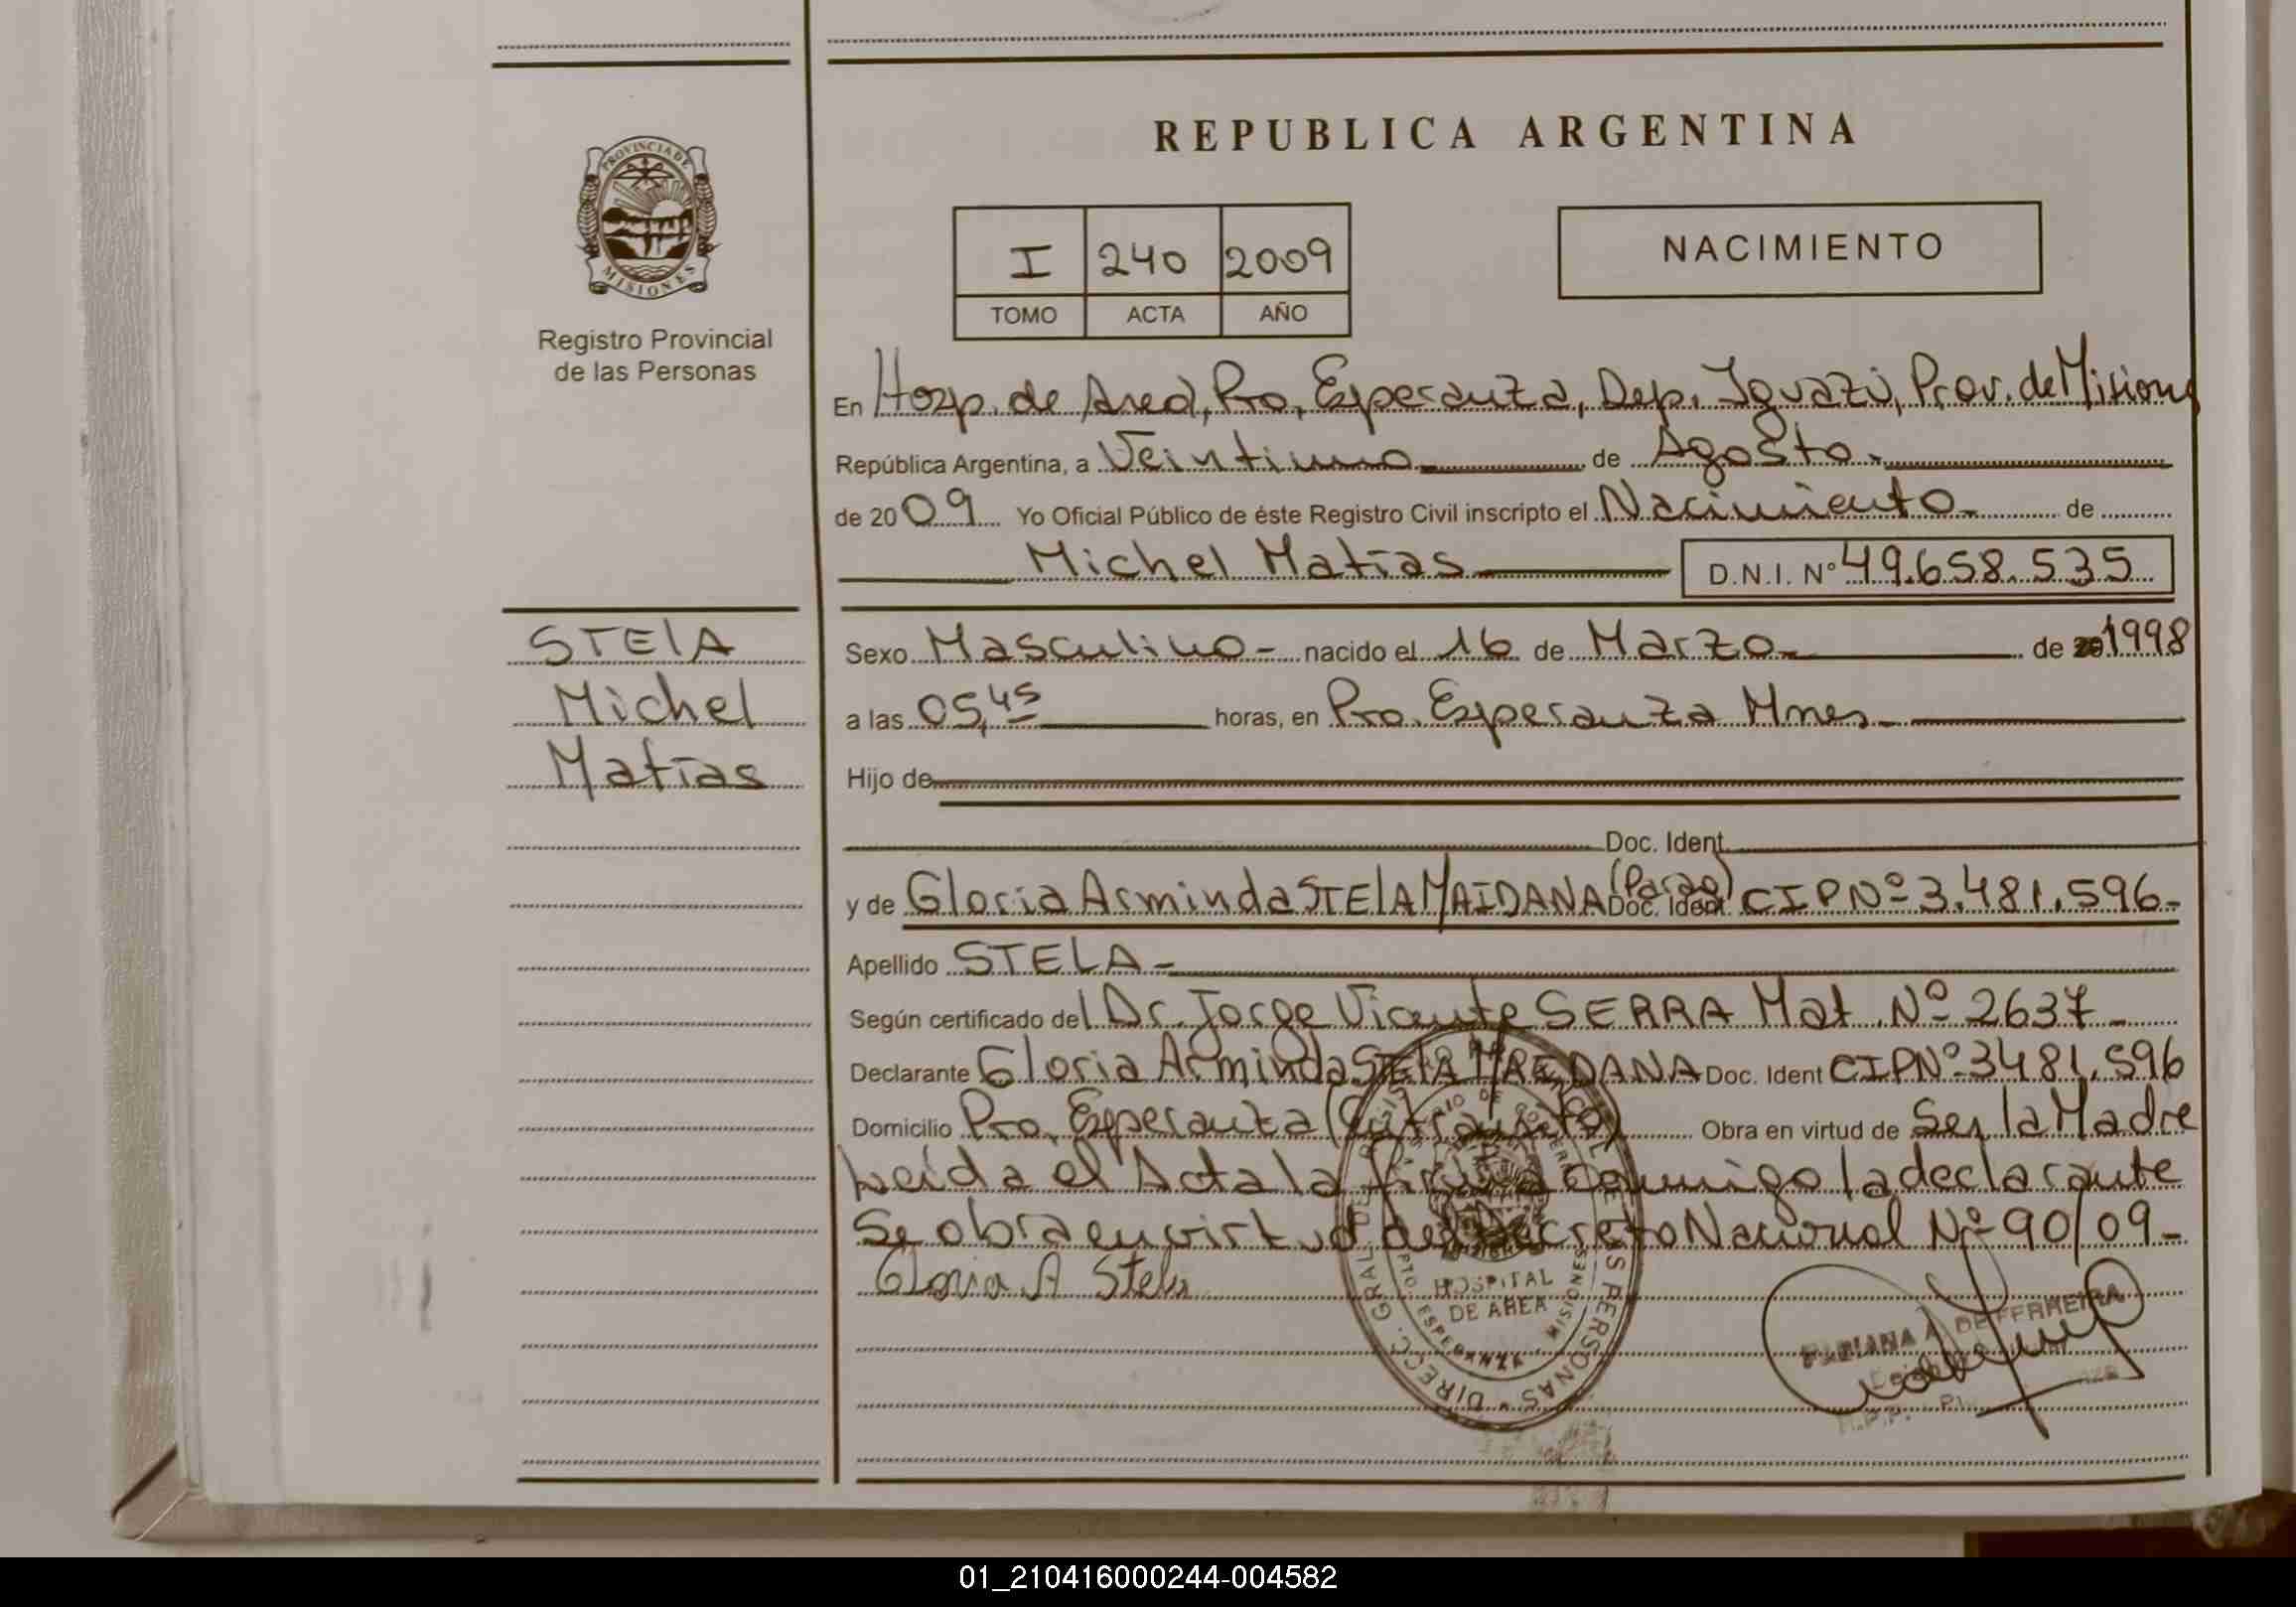 REPUBLICA ARGENTINA
PROVINCIA DE
MISIONES
Registro Provincial
de las Personas
I 240 2009
TOMO ACTA AÑO
NACIMIENTO
En Hosp. de Area, Pto. Esperanza, Dep. Iguazú, Prov. de Misiones
República Argentina, a Veintiuno de Agosto.
de 2009 Yo Oficial Público de éste Registro Civil inscripto el Nacimiento de
Michel Matías D.N.I. Nº 49.658.535
STELA
Michel
Matías
Sexo Masculino - nacido el 16 de Marzo de 1998
a las 05,45 horas, en Pto. Esperanza Mnes -
Hijo de
Doc. Ident.
y de Gloria Arminda STELA MAIDANA (Parag) Doc. Ident. CIP Nº 3.481.596-
Apellido STELA -
Según certificado del Dr. Jorge Vicente SERRA Mat. Nº 2637 -
Declarante Gloria Arminda STELA MAEDANA Doc. Ident CIP Nº 3481.596
Domicilio Pto. Esperanza Obra en virtud de Ser la Madre
Leída el Acta la firma conmigo la declarante
Se obra en virtud del Decreto Nacional Nº 90/09 -
Gloria A Stela
HOSPITAL
DE AREA
FABIANA A. DE FERREIRA
01_210416000244-004582